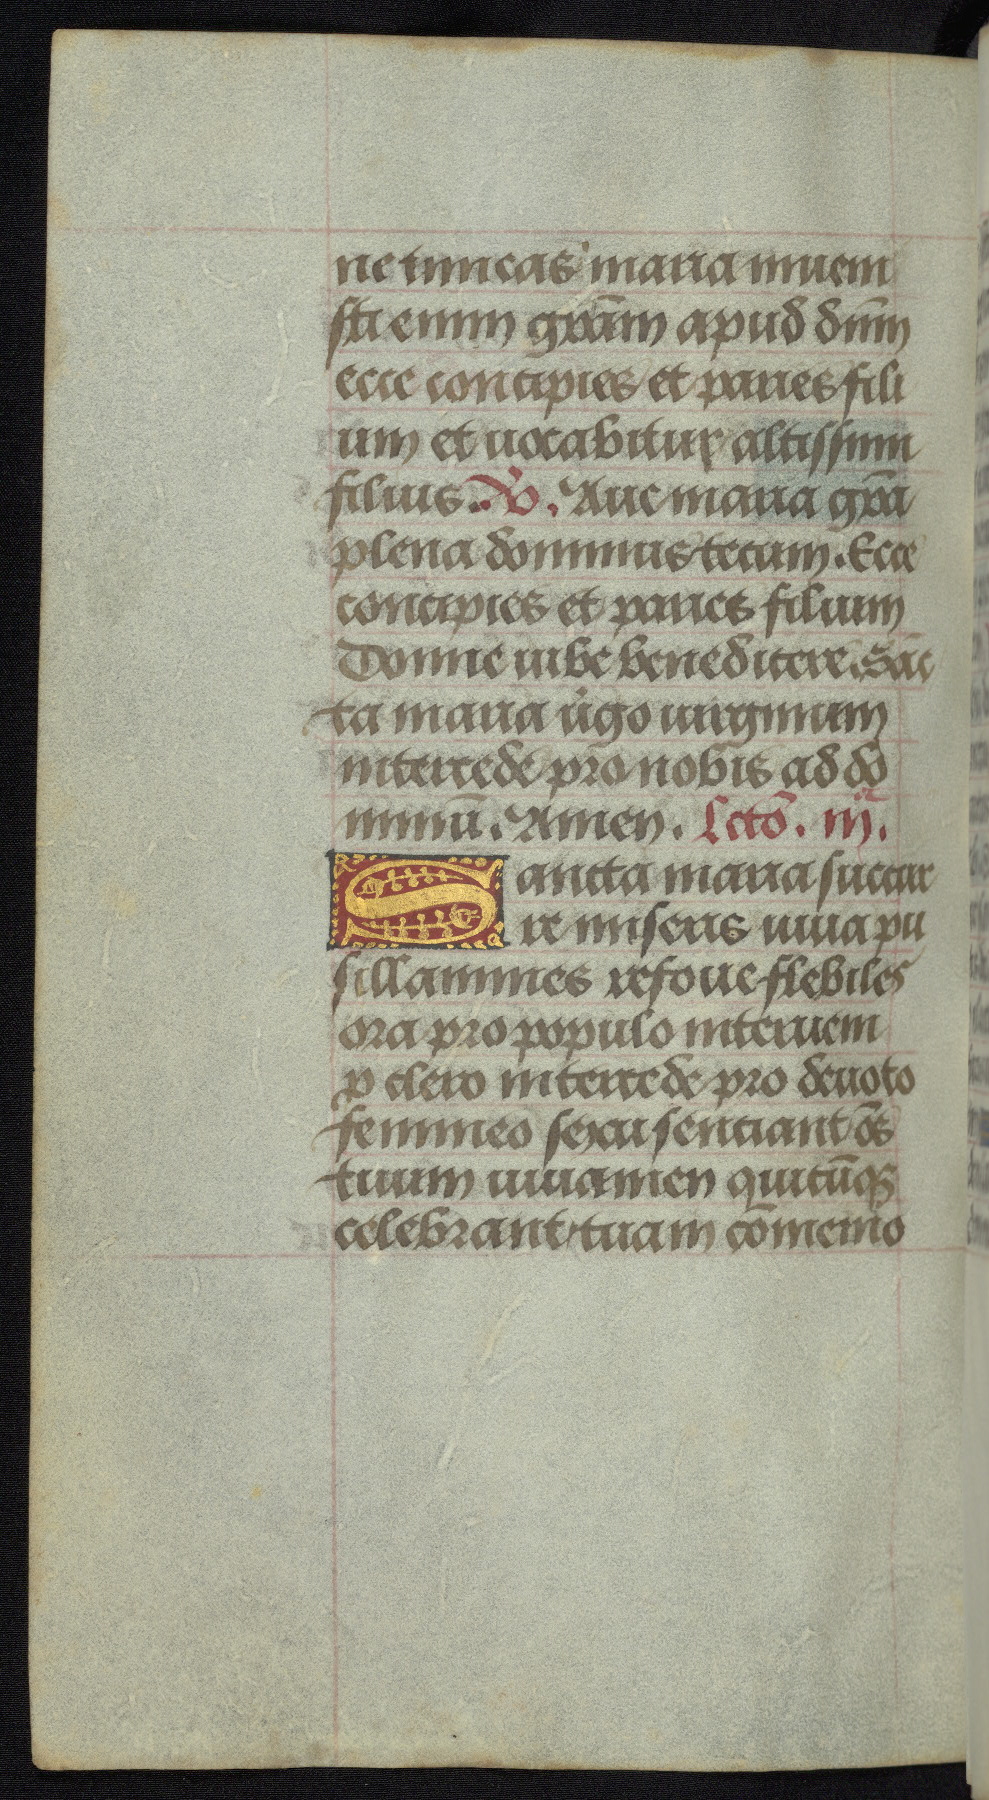 ne timeas maria inueni
sti enim grãm apud dñm
ecce concipies et paries fili
um et uocabitur altissimi
filius. ℟. Aue maria grã
plena dominus tecum. Ecce
concipies et paries filium
Domne iube benedicere. Sãc
ta maria ũgo uirginum
intercede pro nobis ad do
minũ. Amen. Lctõ. iijª.
Sancta maria succur
re miseris iuua pu
sillanimes refoue flebiles
ora pro populo interueni
p clero intercede pro deuoto
femineo sexu senciant õs
tuum iuuamen quicũqꝫ
celebrant tuam cõmemo